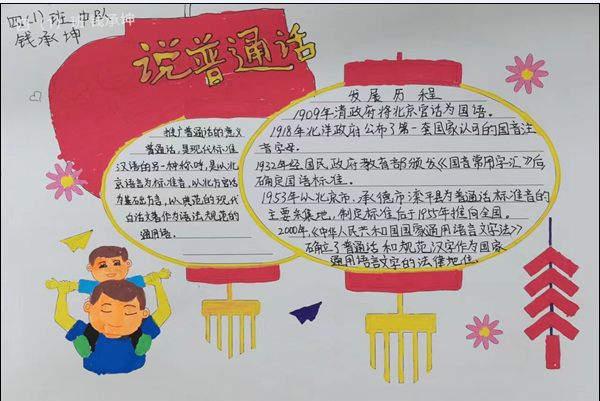 四(1)班 中队
钱承坤
说普通话
推广普通话的意义
普通话，是现代标准
汉语的另一种称呼，是以北
京语音为标准音，以北方官话
为基础方言，以典范的现代
白话文著作为语法规范的
通用语。
发展历程
1909年清政府将北京官话为国语。
1918年北洋政府公布了第一套国家认可的国音注
音字母。
1932年经国民政府教育部颁发《国音常用字汇》后
确定国语标准。
1953年以北京市、承德市滦平县为普通话标准音的
主要采集地，制定标准后于1955年推向全国。
2000年，《中华人民共和国国家通用语言文字法》
确立了普通话和规范汉字作为国家
通用语言文字的法律地位。